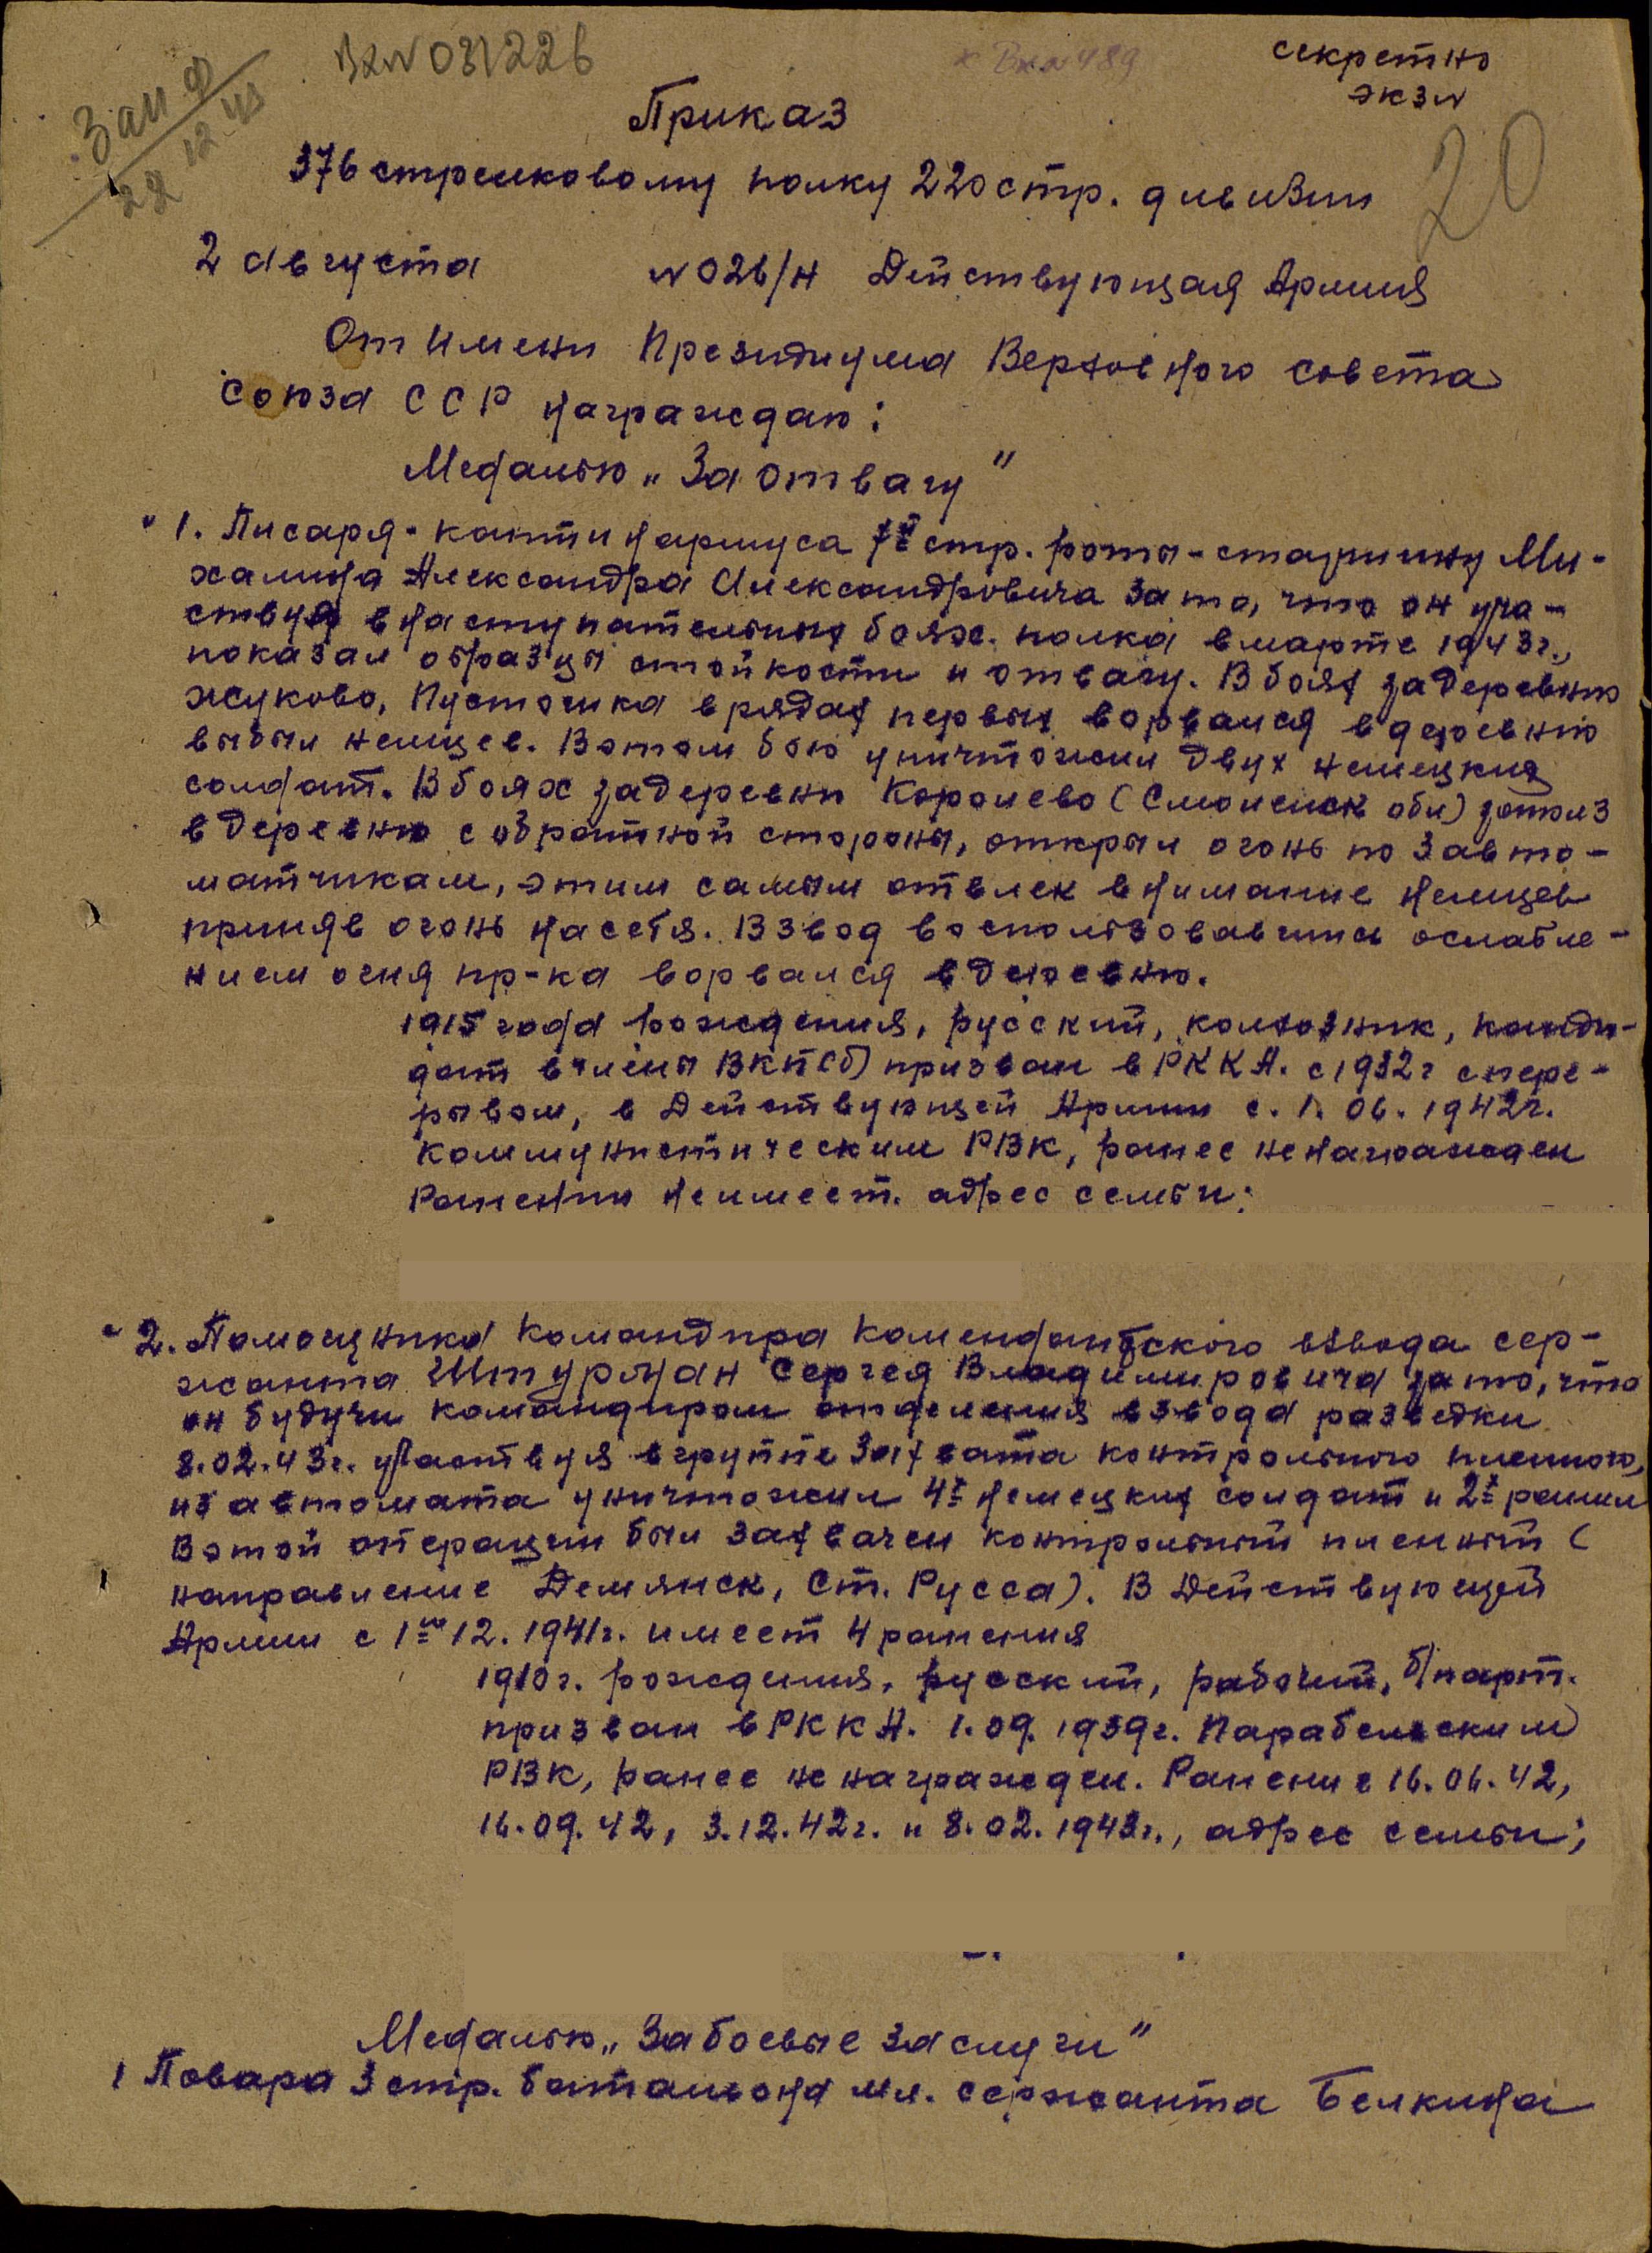 Вх№031226
секретно
экз№
Зан
22 12 43
20
Приказ
376 стрелковому полку 220 стр. дивизии
2 августа №026/н Действующая Армия
От имени Президиума Верховного совета
союза ССР награждаю:
Медалью „За отвагу"
1. Писаря-каптинармуса 7й стр. роты - старшину Ми-
халина Александра Александровича за то, что он уча-
ствуя в наступательных боях. полка в марте 1943г.,
показал образцы стойкости и отвагу. В боях за деревню
жуково, Пустошка в рядах первых ворвался в деревню
выбыл немцев. В этом бою уничтожил двух немецких
солдат. В боях за деревни Королево (Смоленск обл)
в деревню с обратной стороны, открыл огонь по 3 авто-
матчикам, этим самым отвлек внимание немцев
приняв огонь на себя. Взвод воспользовавшись ослабле-
нием огня пр-ка ворвался в деревню.
1915 года рождения, русский, колхозник, канди-
дат в члены ВКП(б) призван в РККА. с 1932г с пере-
рывом, в Действующей Армии с. 1. 06. 1942г.
Коммунистическим РВК, ранее не награжден
Ранении не имеет. адрес семьи:
2. Помощника командира комендантского взвода сер-
жанта Штурман Сергея Владимировича за то, что
он будучи командиром отделения взвода разведки
8.02.43г. участвуя в группе захвата контрольного пленного,
из автомата уничтожил 4х немецких солдат и 2х ранил
В этой операции был захвачен контрольный пленный (
направление Демянск, Ст. Русса). В Действующей
Армии с 1го 12. 1941г. имеет 4 ранения
1910г. рождения, русский, рабочий, б/парт.
призван в РККА. 1.09.1939г. Парабельским
РВК, ранее не награжден. Ранение 16.06.42,
16.09.42, 3.12.42г. и 8.02.1943г., адрес семьи;
Медалью „За боевые заслуги"
1 Повара 3 стр. батальона мл. сержанта Белкина